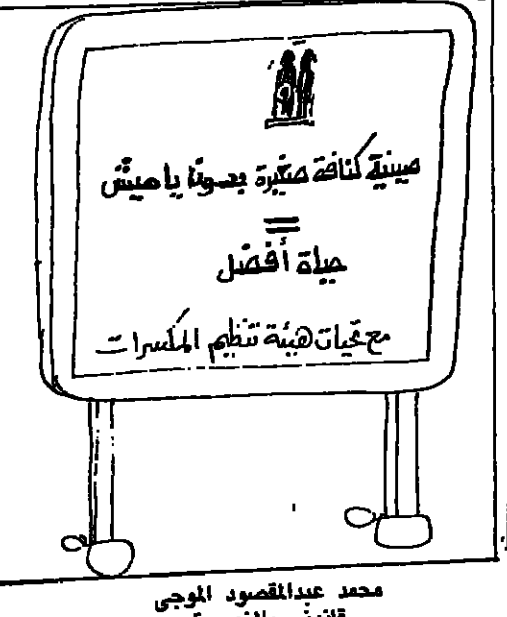 صينية كنافة صغيرة بصوتًا ياهيش
=
حياة أفضل
مع تحيات هيئة تنظيم المكسرات
محمد عبدالمقصود الموجى